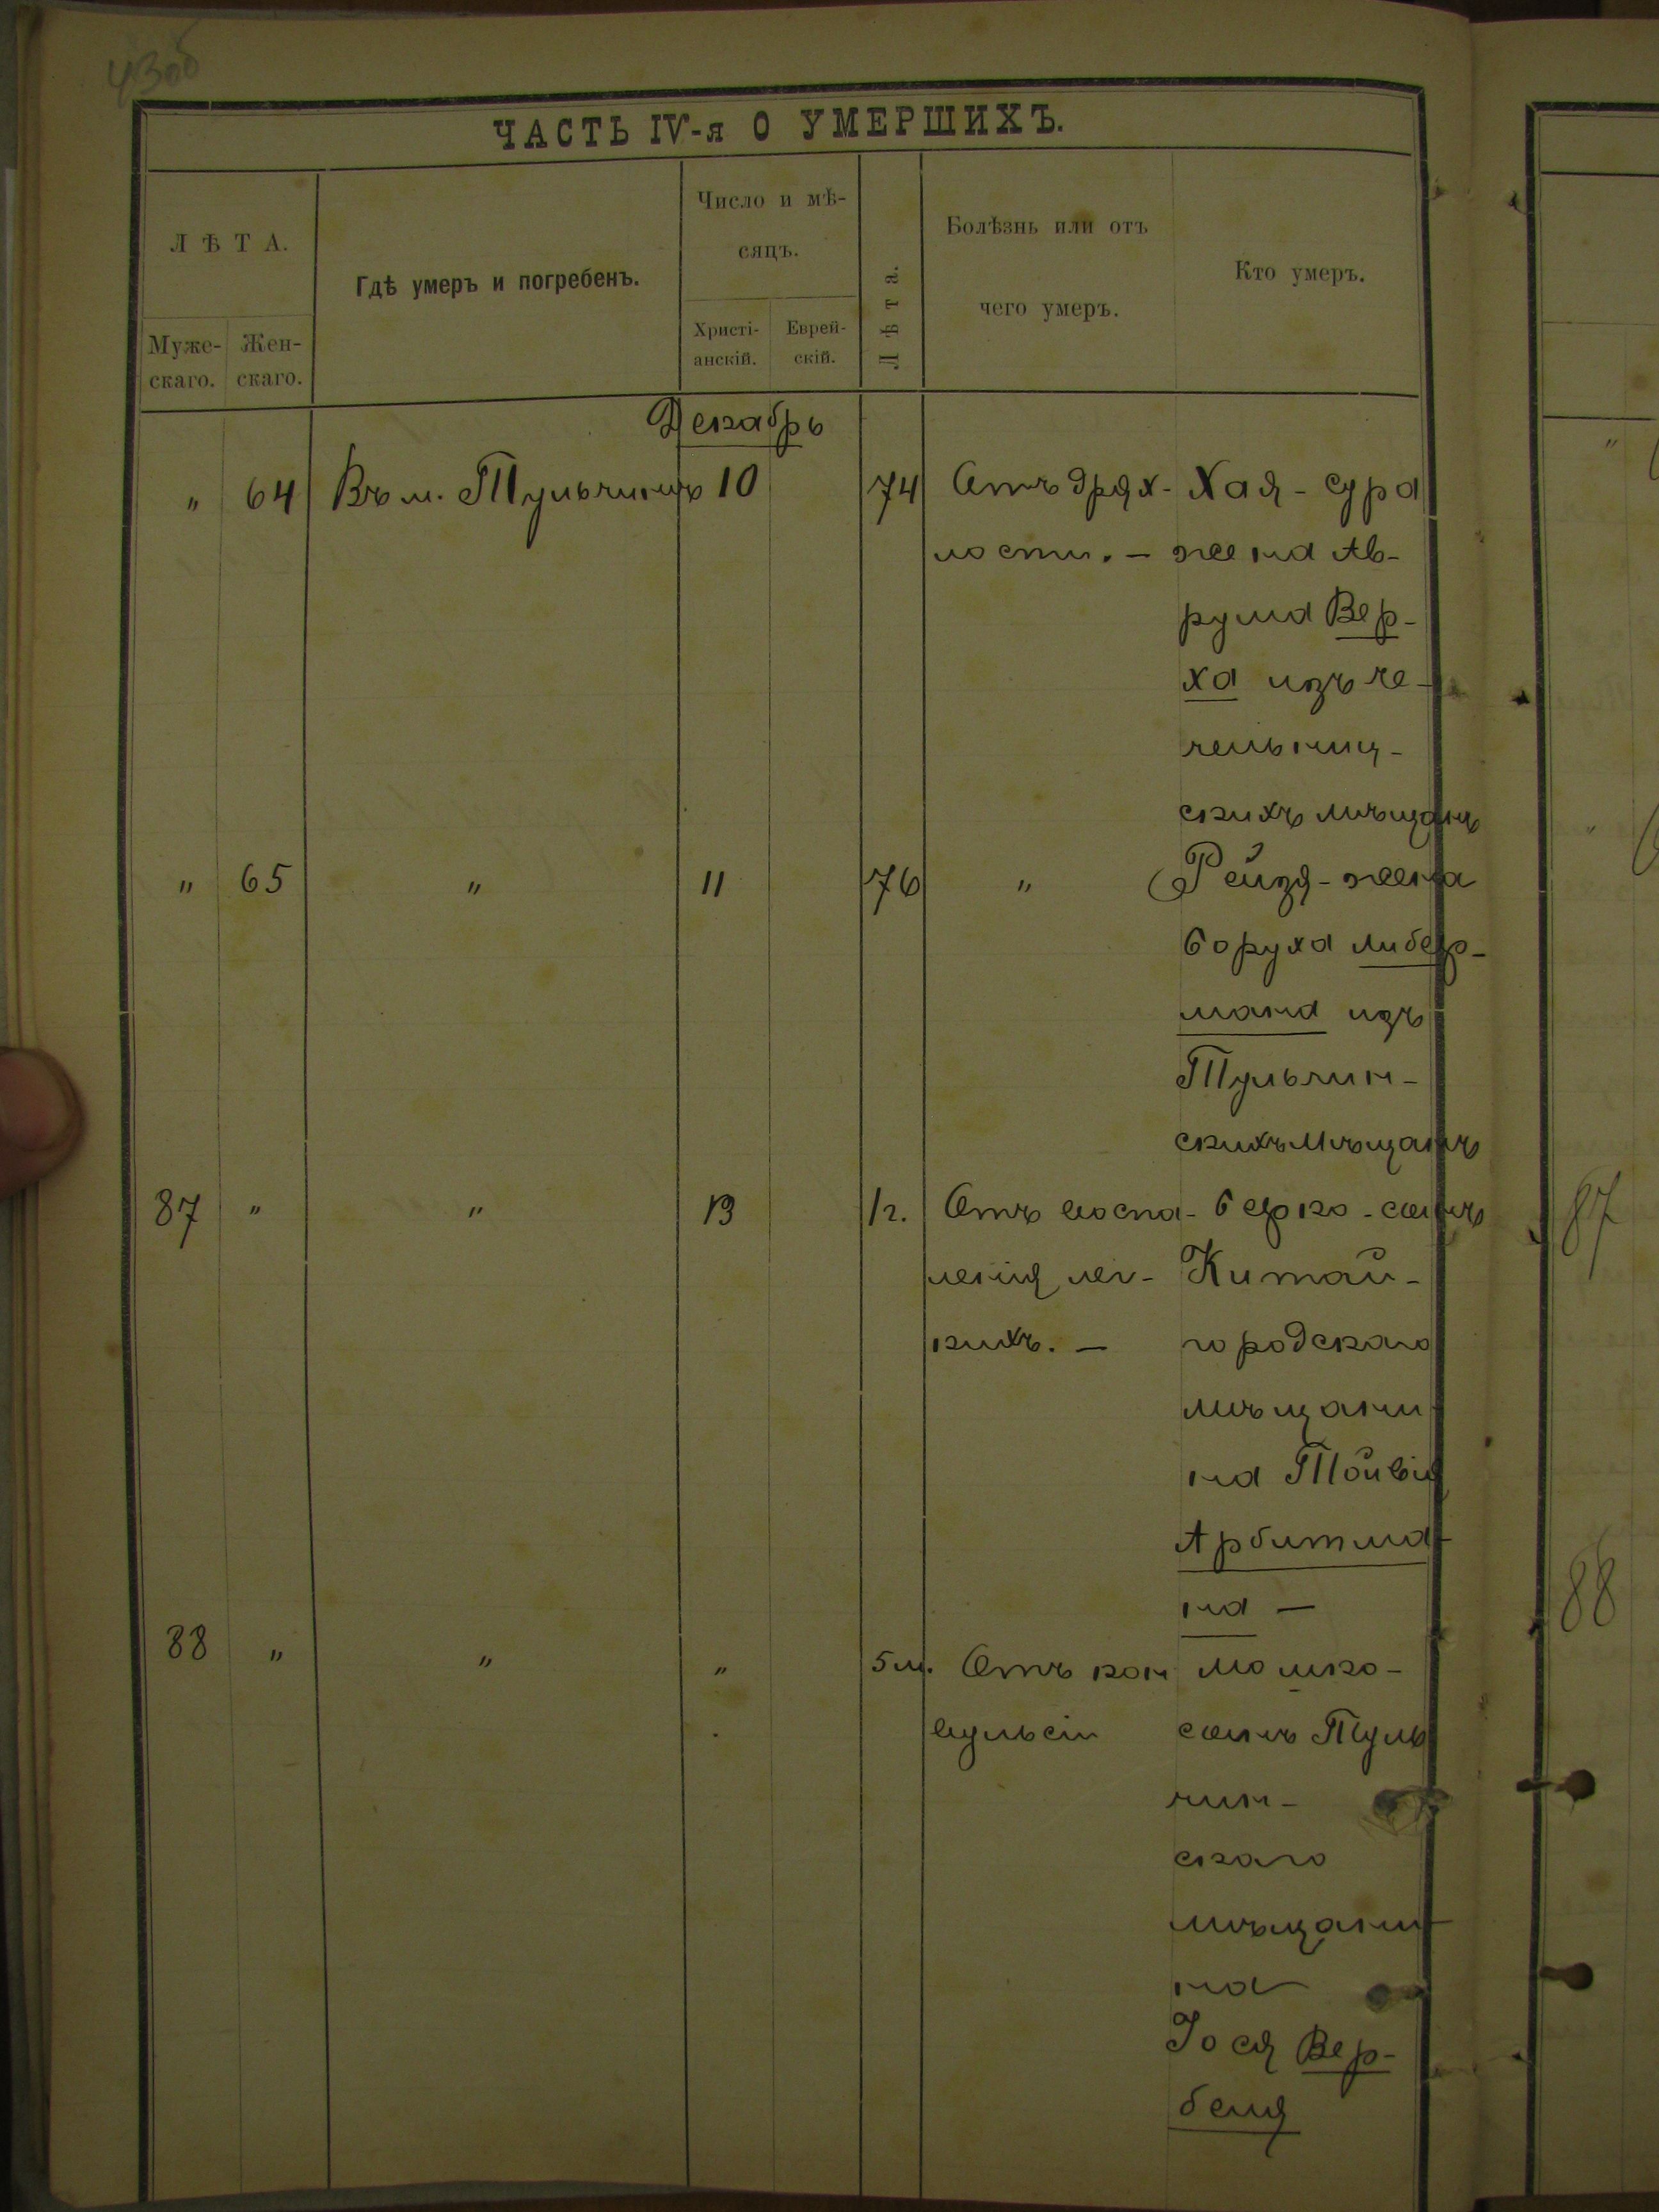 43об
ЧАСТЬ IV-я О УМЕРШИХЪ.
ЛѢТА.
Муже-
скаго.
Жен-
скаго.
Гдѣ умеръ и погребенъ.
Число и мѣ-
сяцъ.
Христі-
анскій.
Еврей-
скій.
Лѣта.
Болѣзнь или отъ
чего умеръ.
Кто умеръ.
Декабрь
" 64 Въ м. Тульчинѣ 10 74 Отъ дрях- Хая-Сура
лости. — жена Ав-
рума Вер-
ха изъ че-
чельниц-
скихъ мѣщанъ
" 65 " 11 76 " Рейзя - жена
Боруха Либер-
мана изъ
Тульчин-
скихъ мѣщанъ
87 " " 13 1г. Отъ воспа- Берко - сынъ
ленія лег- Китай-
кихъ. — городскаго
мѣщани
на Тойвія
Арбитма-
на —
88 " " " 5м. Отъ кон Мошко-
вульсіи сынъ Туль
чин-
скаго
мѣщани-
на
Іося Вер-
беля
"
"
87
88